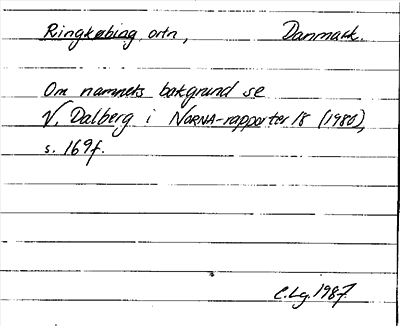 Ringkøbing, ortn, Danmark.
Om namnets bakgrund se
V. Dalberg i NORNA-rapporter 18 (1980),
s. 169f.
C.Lg. 1987.